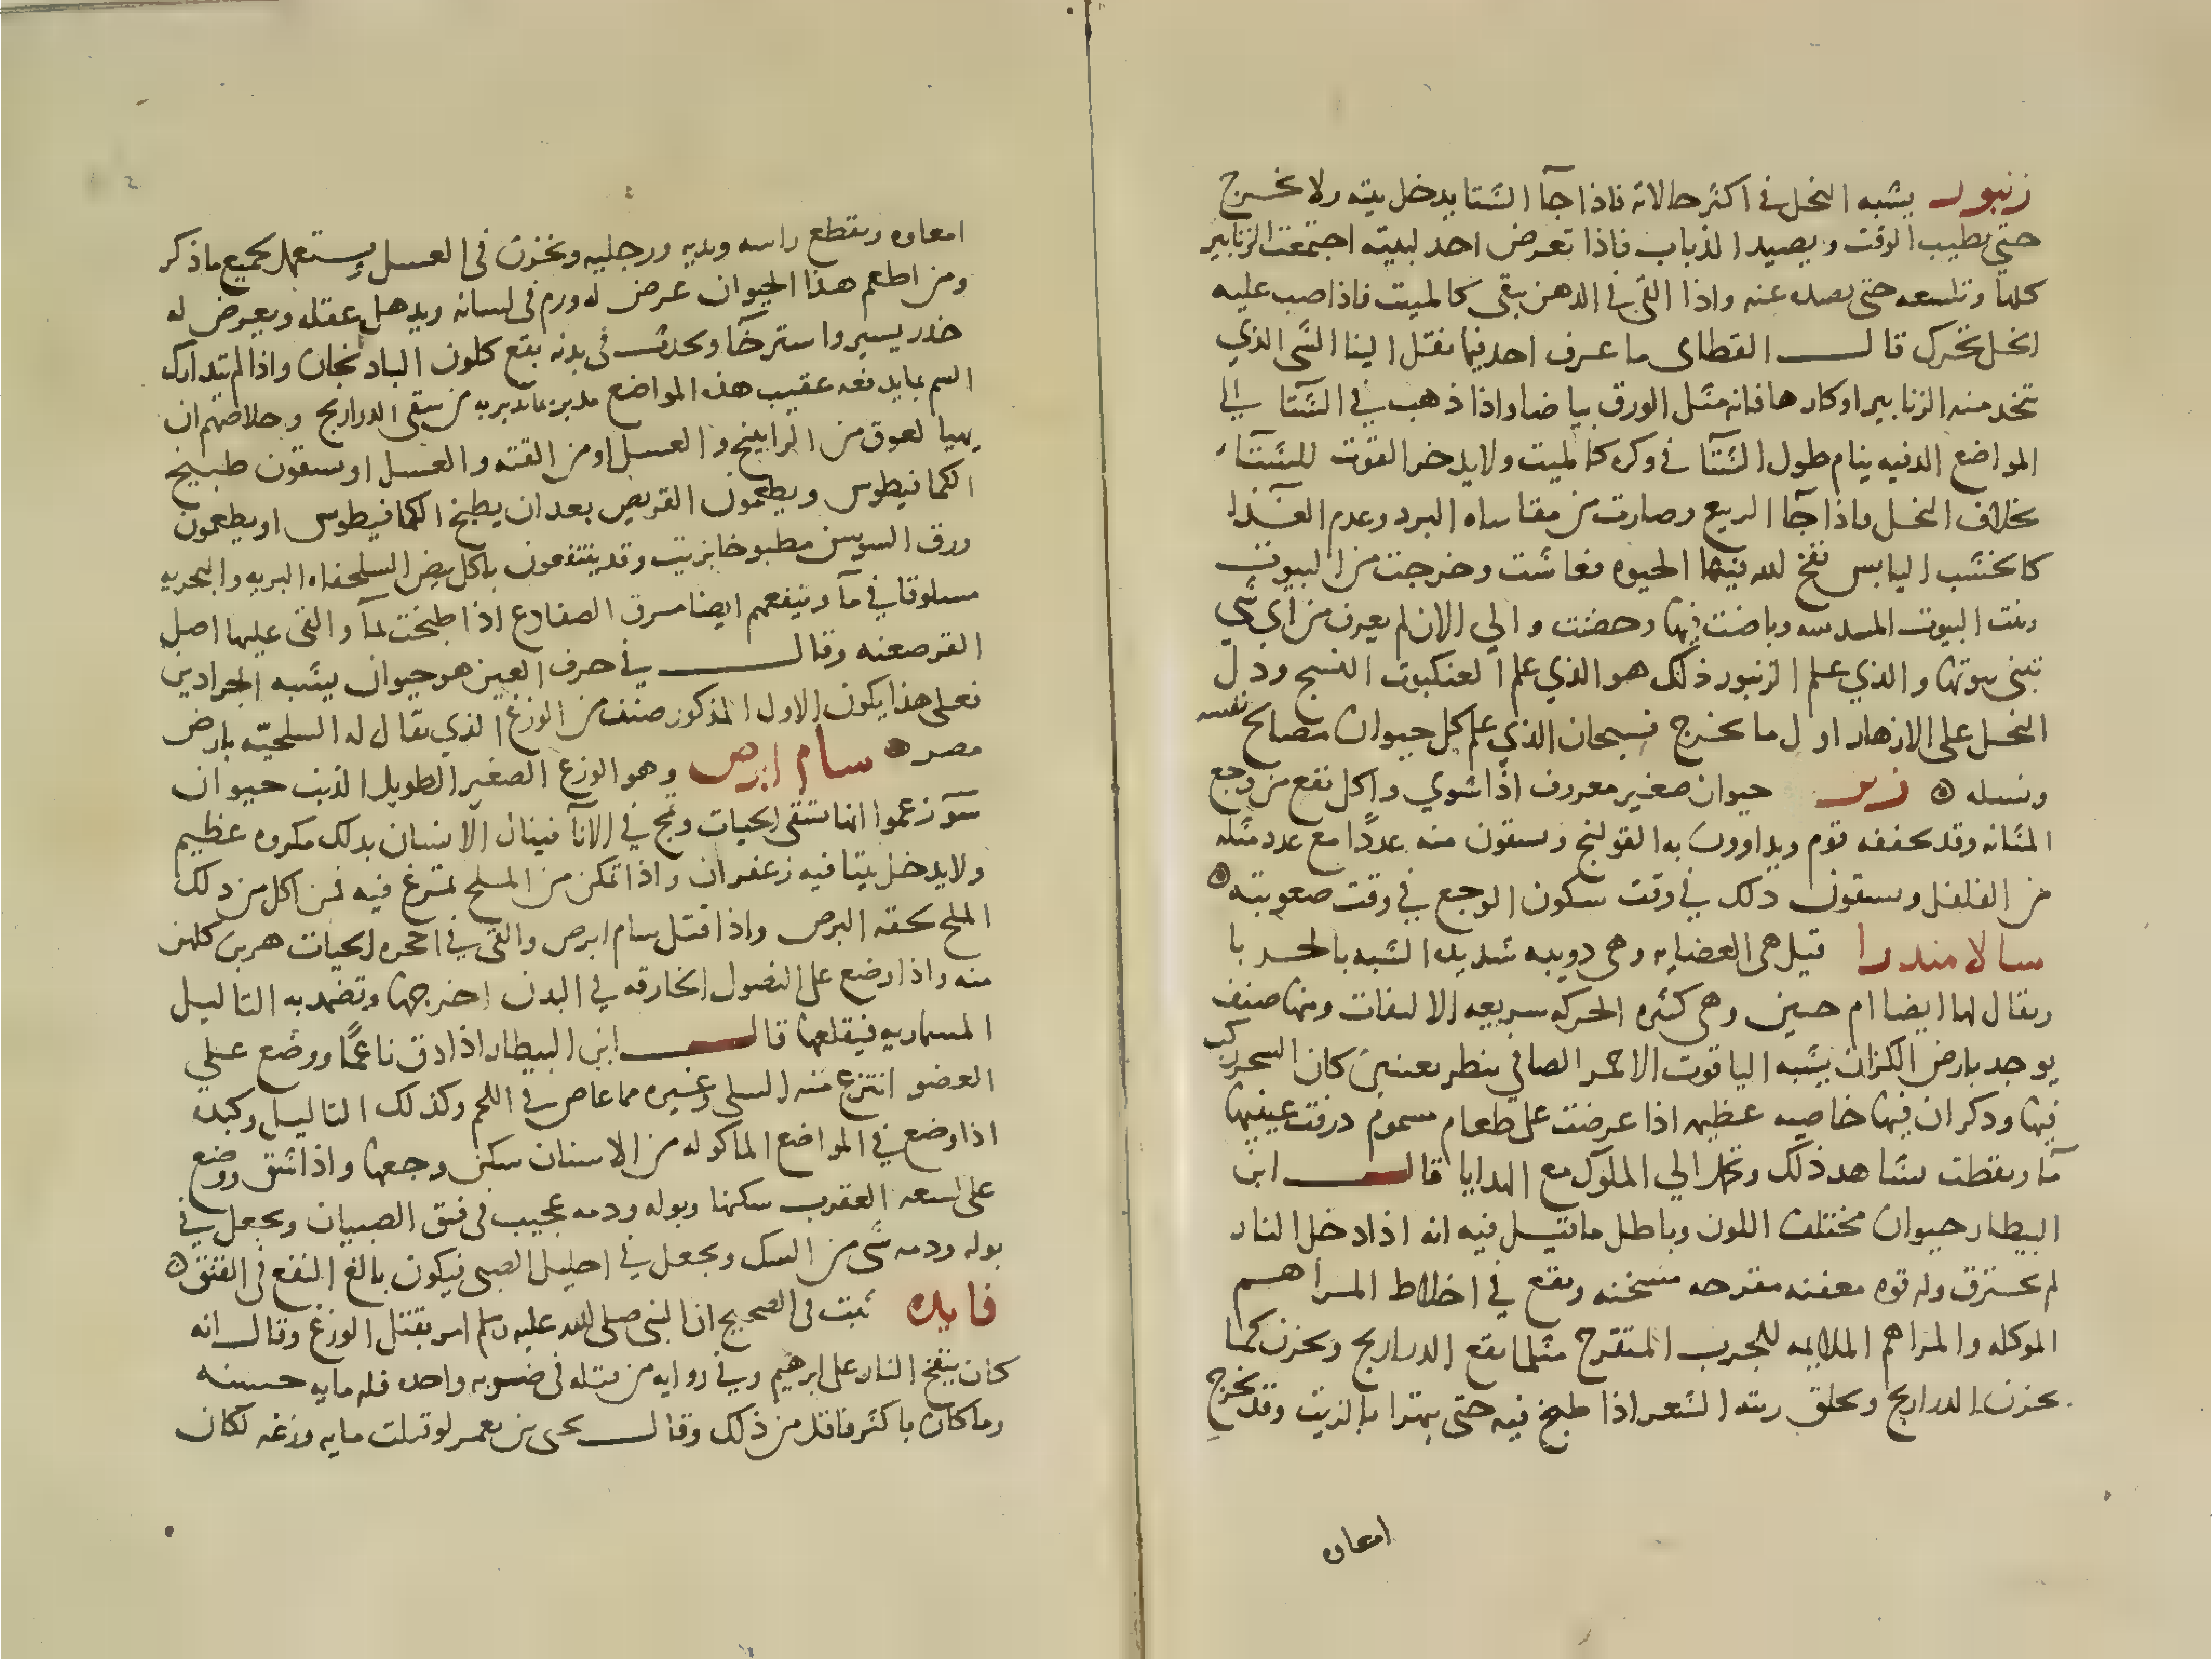 زنبور يشبه النحل في اكثر حالاته فاذا جآ الشتا يدخل بيته ولا يخرج
حتي يطيب الوقت ويصيد الذباب فاذا تعرض احد لبيته اجتمعت الزنابير
كلها وتلسعه حتى يصد عنه واذا القي في الدهن يبقى كالميت فاذا صب عليه
الخل تحرك قال القطامي ما عرف احد فيما نقل الينا الشي الذي
تتخد منه الزنابير اوكارها فانه مثل الورق بياضا واذا ذهب في الشتا الي
المواضع الدفيه ينام طول الشتا في وكره كالميت ولا يدخر القوت للشتاء
بخلاف النحل فاذا جآ الربيع وصارت من مقاساه البرد وعدم الغذا
كالخشب اليابس نفخ الله فيها الحيوه فعاشت وخرجت من البيوت
وبنت البيوت المسدسه وباضت فيها وحضنت والي الان لم يعرف من اي شي
تبني بيوتها والذي علم الزنبور ذلك هو الذي علم العنكبوت النسج ودل
النحل على الازهار اول ما تخرج فسبحان الذي علم كل حيوان مصالح نفسه
ونسله حيوان صغير معروف اذا شوي واكل نفع من وجع
المثانه وقد يجففه قوم ويداوون به القولنج ويسقون منه عددًا مع عدد مثله
من الفلفل ويسقون دلك في وقت سكون الوجع في وقت صعوبته
سالامندرا قيل هي العضايه وهي دويبه شديده الشبه بالحربا
ويقال لها ايضا ام حبين وهي كثره الحركه سريعه الالتفات ومنها صنف
يوجد بارض الكزان يشبه الياقوت الاحمر الصافي ينظر بعينين كان السحر ركب
فيها ودكر ان فيها خاصيه عظيمه اذا عرضت على طعام مسموم درفت عينيها
مآ ونقطت يشاهد ذلك وتحمل الي الملوك مع الهدايا قال ابن
البيطار حيوان مختلف اللون وباطل ما قيل فيه انه اذا دخل النار
لم يحترق وله قوه معفنه مقرحه مسخنه ويقع في اخلاط المراهم
الموكله والمراهم الملايمه للجرب المتقرح مثلما يقع الدراريج ويخزن كما
يخزن الدراريج ويحلق زيته الشعر اذا طبخ فيه حتى يتهرا بالزيت وقد تخرج
امعاوه
امعاوه ويقطع راسه ويديه ورجليه ويخزن في العسل ويستعمل لجميع ما ذكر
ومن اطعم هذا الحيوان عرض له ورم في لسانه ويدهل عقله ويعرض له
خدر يسير واسترخآ ويحدث في بدنه بقع كلون البادنجان واذا لم يتدارك
السم بما يدفعه عقيب هذه المواضع مدبره بما تدبر به من سقي الدراريج وخلاصهم ان
يهيا لعوق من الراتينج والعسل او من القنه والعسل او يسقون طبيخ
الكمافيطوس ويطعمون القريص بعد ان يطبخ الكمافيطوس او يطعمون
ورق السوسن مطبوخا بزيت وقد ينتفعون باكل بيض السلحفاه البريه والبحريه
مسلوقا في مآ وينفعهم ايضا مرق الضفادع اذا طبخت بمآ والقى عليها اصل
القرصعنه وقال في حرف العين هو حيوان يشبه الجرادين
فعلى هذا يكون الاول المذكور صنف من الوزغ الذي يقال له السلحيته بارض
مصر سام ابرص وهو الوزغ الصغير الطويل الذنب حيوان
سؤ زعموا انها تسقى الحيات وتمج في الانآ فينال الانسان بدلك مكروه عظيم
ولا يدخل بيتا فيه زعفران واذا تمكن من الملح تمرغ فيه فمن اكل من دلك
الملح لحقه البرص واذا قتل سام ابرص والقي في احجره الحيات هربن كلهن
منه واذا وضع على النصول الخارقه في البدن اخرجها وتضمد به التاليل
المسماريه فيقلعها قال ابن البيطار اذا دق ناعمًا ووضع علي
العضو انتزع منه السلي وغيره مما غاص في اللحم وكذلك التاليل وكبده
اذا وضع في المواضع الماكوله من الاسنان سكن وجعها واذا شق ووضع
على لسعه العقرب سكنها وبوله ودمه عجيب في فتق الصبيان ويجعل في
بوله ودمه شي من السك ويجعل في احليل الصبي فيكون بالغ النفع في الفتق
فايده ثبت في الصحيح ان النبي صلى الله عليه وسلم امر بقتل الوزغ وقال انه
كان ينفخ النار على ابرهيم وفي روايه من قتله في ضربه واحده فله مايه حسنه
وما كان باكثر فاقل من ذلك وقال يحيى بن يعمر لو قتلت مايه وزغه لكان